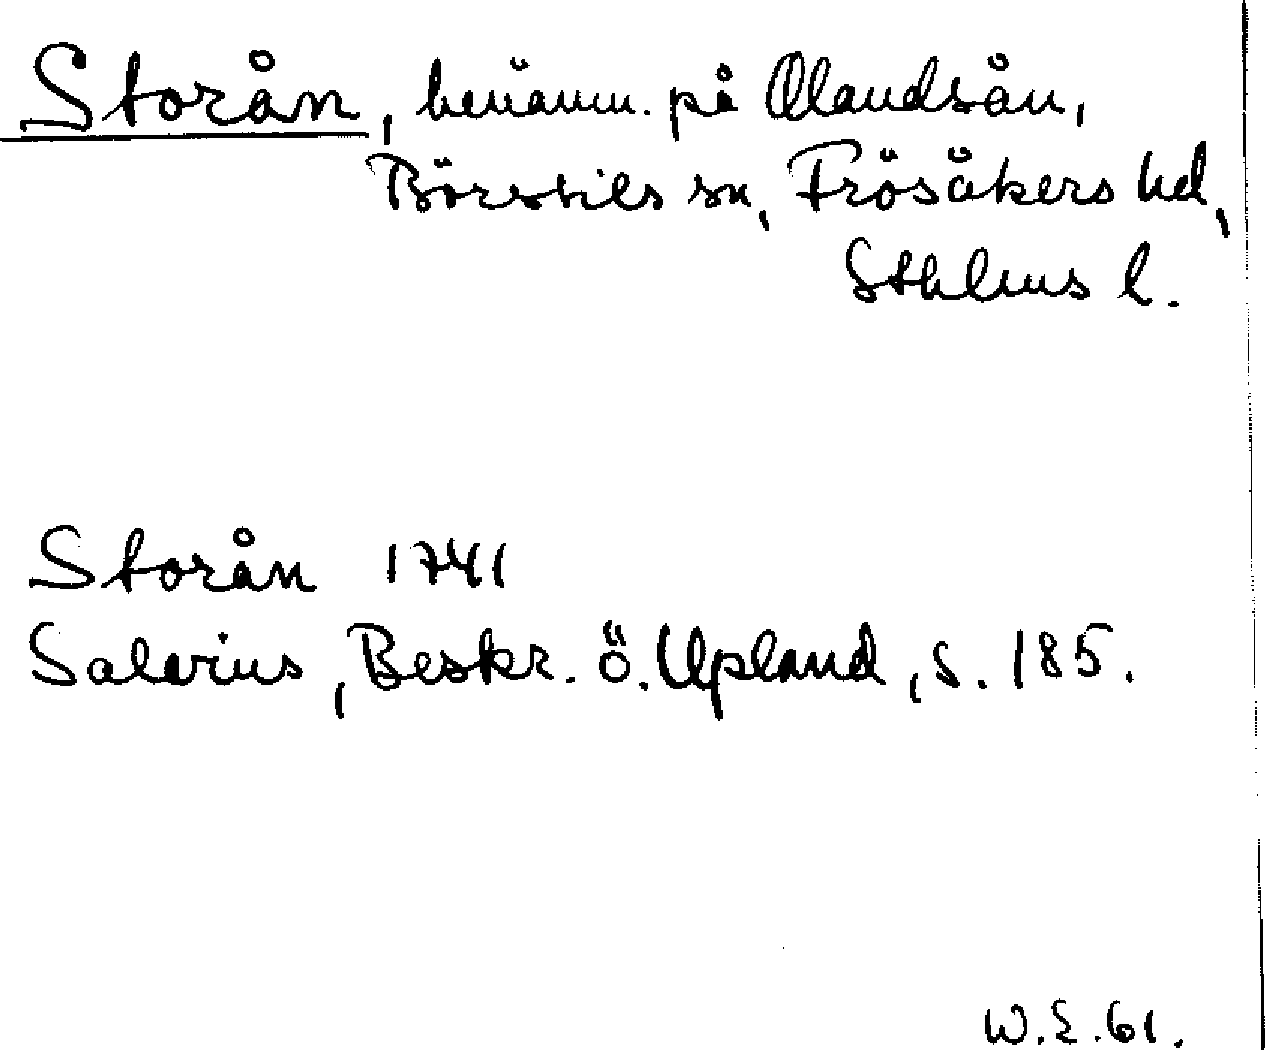 Storån, benämn. på Olandsån,
Börstils sn, Frösåkers hd,
Sthlms l.
Storån 1741
Salerius, Beskr. ö. Upland, s. 185.
W.E.61.